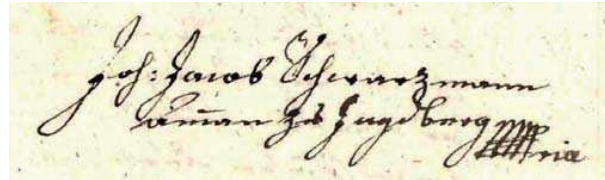 Joh: Jacob Schwarzmann
aman zu Jagdberg mria